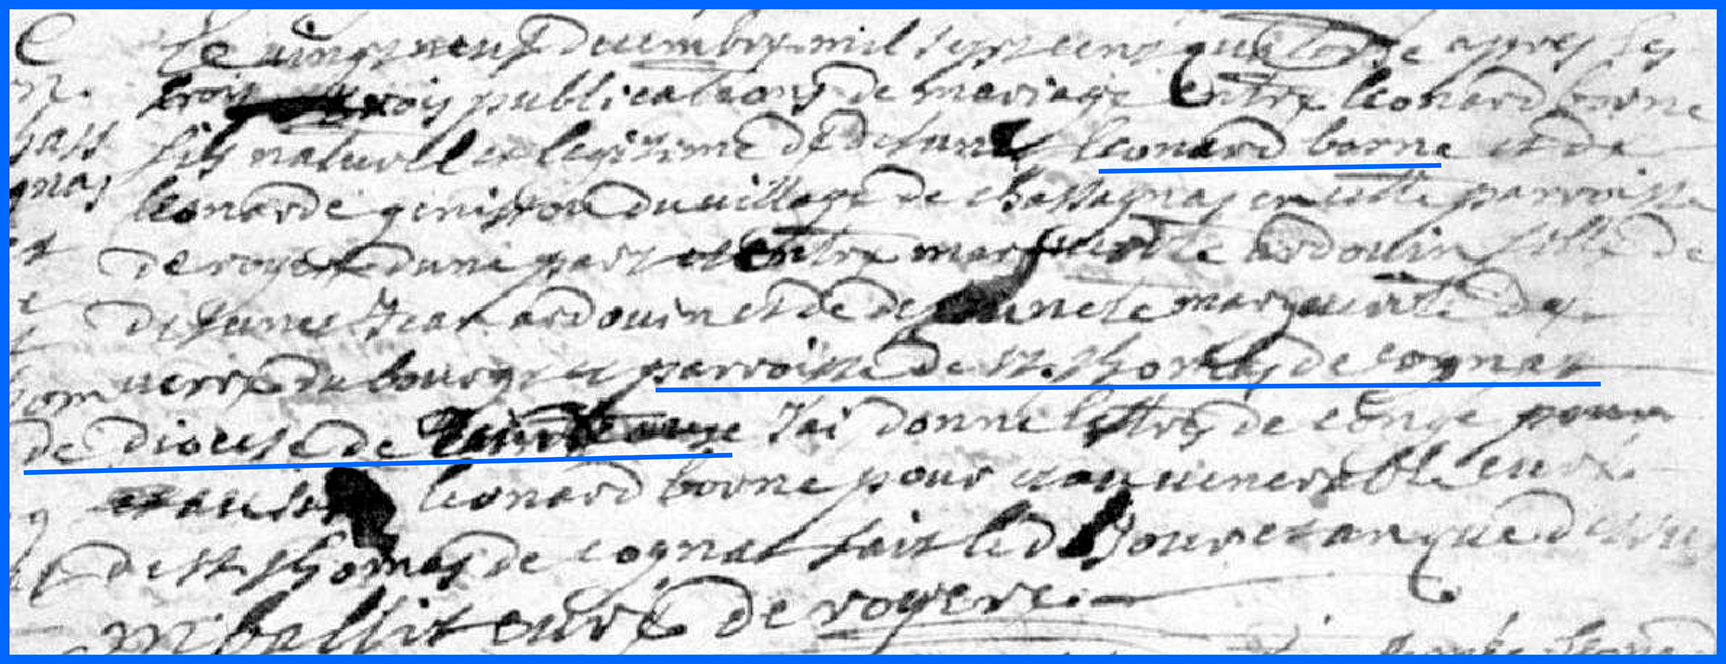 C Le vingt neuf decembre mil sept cent quatorse apres les
trois publications de mariage entre leonard borne
hass fils naturell et legitime de defunt leonard borne et de
gnas leonarde genisson du village de chassagnas en cette parroisse
et de royere d'une part et entre marguerite ardouin fille de
defunct Jean ardouin et de defuncte marguerite de
verre du bourg et parroisse de st. thomas de cognat
de diocese de J'ai donne lettres de conge pour
leonard borne pour venerable cure
de st thomas de cognat fait le d Jour et an que dessu
cure de royere